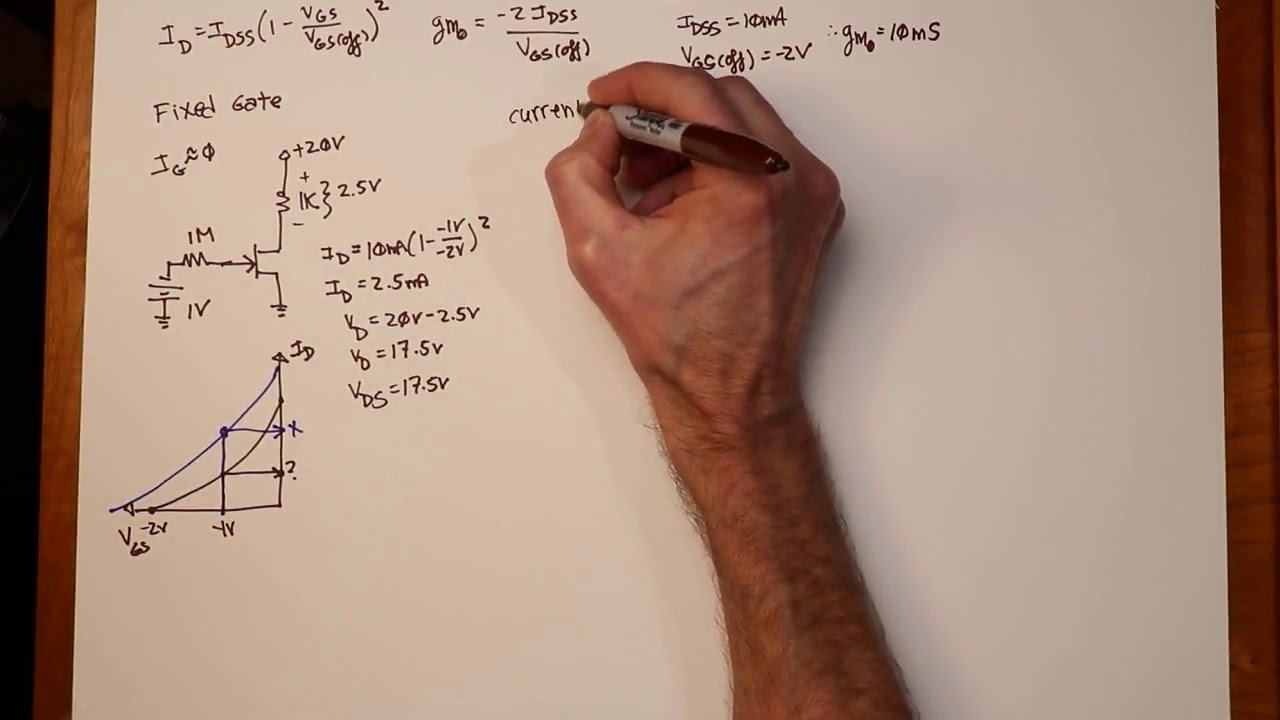 I_D = I_DSS(1 - V_GS/V_GS(off))^2
gm_0 = -2 I_DSS/V_GS(off)
I_DSS = 10mA
V_GS(off) = -2V
∴ gm_0 = 10mS
Fixed Gate
I_G ≈ 0
+20V
+
1K } 2.5V
-
1M
1V
I_D = 10mA(1 - -1V/-2V)^2
I_D = 2.5mA
V_D = 20V - 2.5V
V_D = 17.5V
V_DS = 17.5V
I_D
x
?
V_GS
-2V
-1V
current